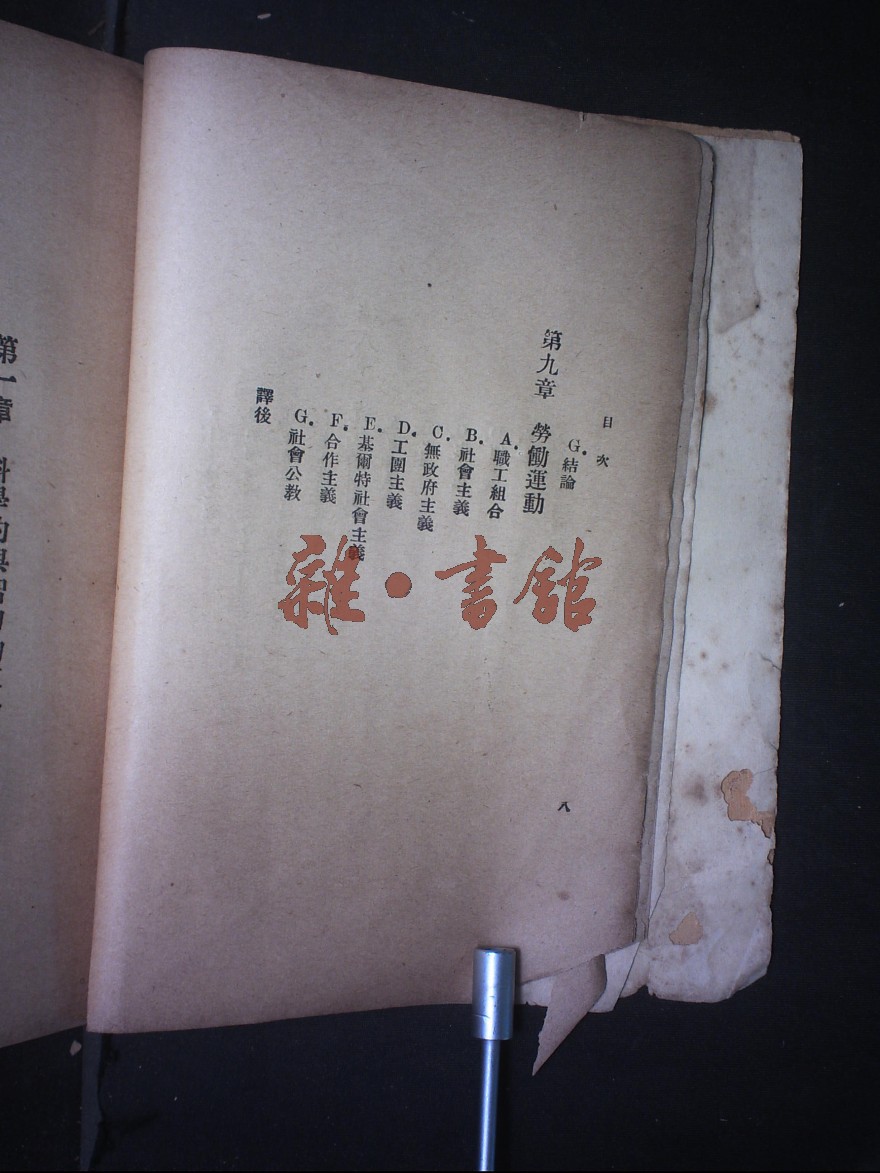 目次
G. 結論
第九章 勞働運動
A. 職工組合
B. 社會主義
C. 無政府主義
D. 工團主義
E. 基爾特社會主義
F. 合作主義
G. 社會公教
譯後
八
雜·書館
第一章